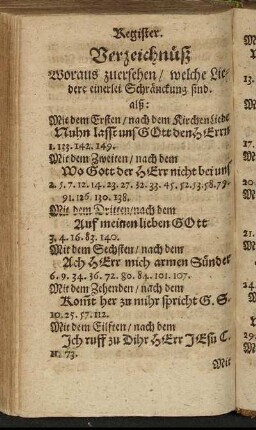 Register.
Verzeichnüß
Woraus zuersehen / welche Lie-
dere einerlei Schränckung sind.
alß:
Mit dem Ersten / nach dem Kirchen Liede
Nuhn lasst uns GOtt den HErrn
1. 133. 142. 149.
Mit dem Zweiten / nach dem
Wo Gott der HErr nicht bei uns
2. 5. 7. 12. 14. 23. 27. 32. 33. 45. 52. 53. 58. 79.
91. 126. 130. 138.
Mit dem Dritten / nach dem
Auf meinen lieben GOtt
3. 4. 16. 83. 140.
Mit dem Sechsten / nach dem
Ach HErr mich armen Sünder
6. 9. 34. 36. 72. 80. 84. 101. 107.
Mit dem Zehenden / nach dem
Komt her zu mihr spricht G. S.
10. 25. 57. 112.
Mit dem Eilften / nach dem
Ich ruff zu Dihr HErr JEsu C.
11. 73.
Mit